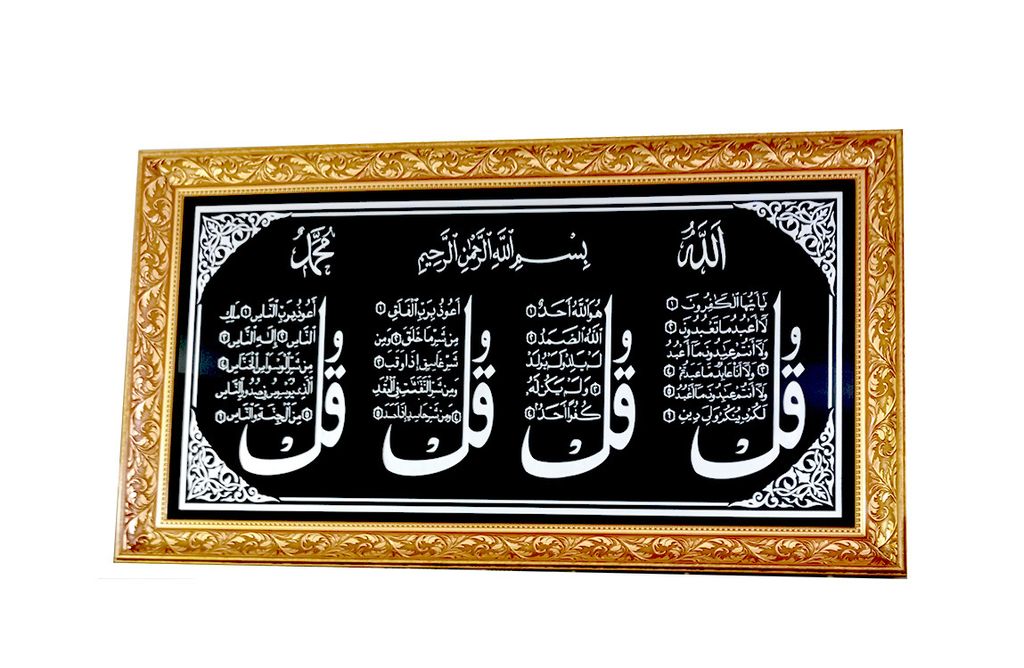 اَللّٰهُ
بِسْمِ اللّٰهِ الرَّحْمٰنِ الرَّحِيْمِ
مُحَمَّدٌ
قُلْ
يٰٓاَيُّهَا الْكٰفِرُوْنَ ١
لَآ اَعْبُدُ مَا تَعْبُدُوْنَ ٢
وَلَآ اَنْتُمْ عٰبِدُوْنَ مَآ اَعْبُدُ
٣ وَلَآ اَنَا عَابِدٌ مَّا عَبَدْتُّمْ ٤
وَلَآ اَنْتُمْ عٰبِدُوْنَ مَآ اَعْبُدُ ٥
لَكُمْ دِيْنُكُمْ وَلِيَ دِيْنِ ٦
قُلْ
هُوَ اللّٰهُ اَحَدٌ ١
اَللّٰهُ الصَّمَدُ ٢
لَمْ يَلِدْ وَلَمْ يُوْلَدْ
٣ وَلَمْ يَكُنْ لَّهٗ
كُفُوًا اَحَدٌ ٤
قُلْ
اَعُوْذُ بِرَبِّ الْفَلَقِ ١
مِنْ شَرِّ مَا خَلَقَ ٢ وَمِنْ
شَرِّ غَاسِقٍ اِذَا وَقَبَ ٣
وَمِنْ شَرِّ النَّفّٰثٰتِ فِى الْعُقَدِ
٤ وَمِنْ شَرِّ حَاسِدٍ اِذَا حَسَدَ ٥
قُلْ
اَعُوْذُ بِرَبِّ النَّاسِ ١ مَلِكِ
النَّاسِ ٢ اِلٰهِ النَّاسِ ٣
مِنْ شَرِّ الْوَسْوَاسِ الْخَنَّاسِ ٤
الَّذِيْ يُوَسْوِسُ فِيْ صُدُوْرِ النَّاسِ
٥ مِنَ الْجِنَّةِ وَالنَّاسِ ٦